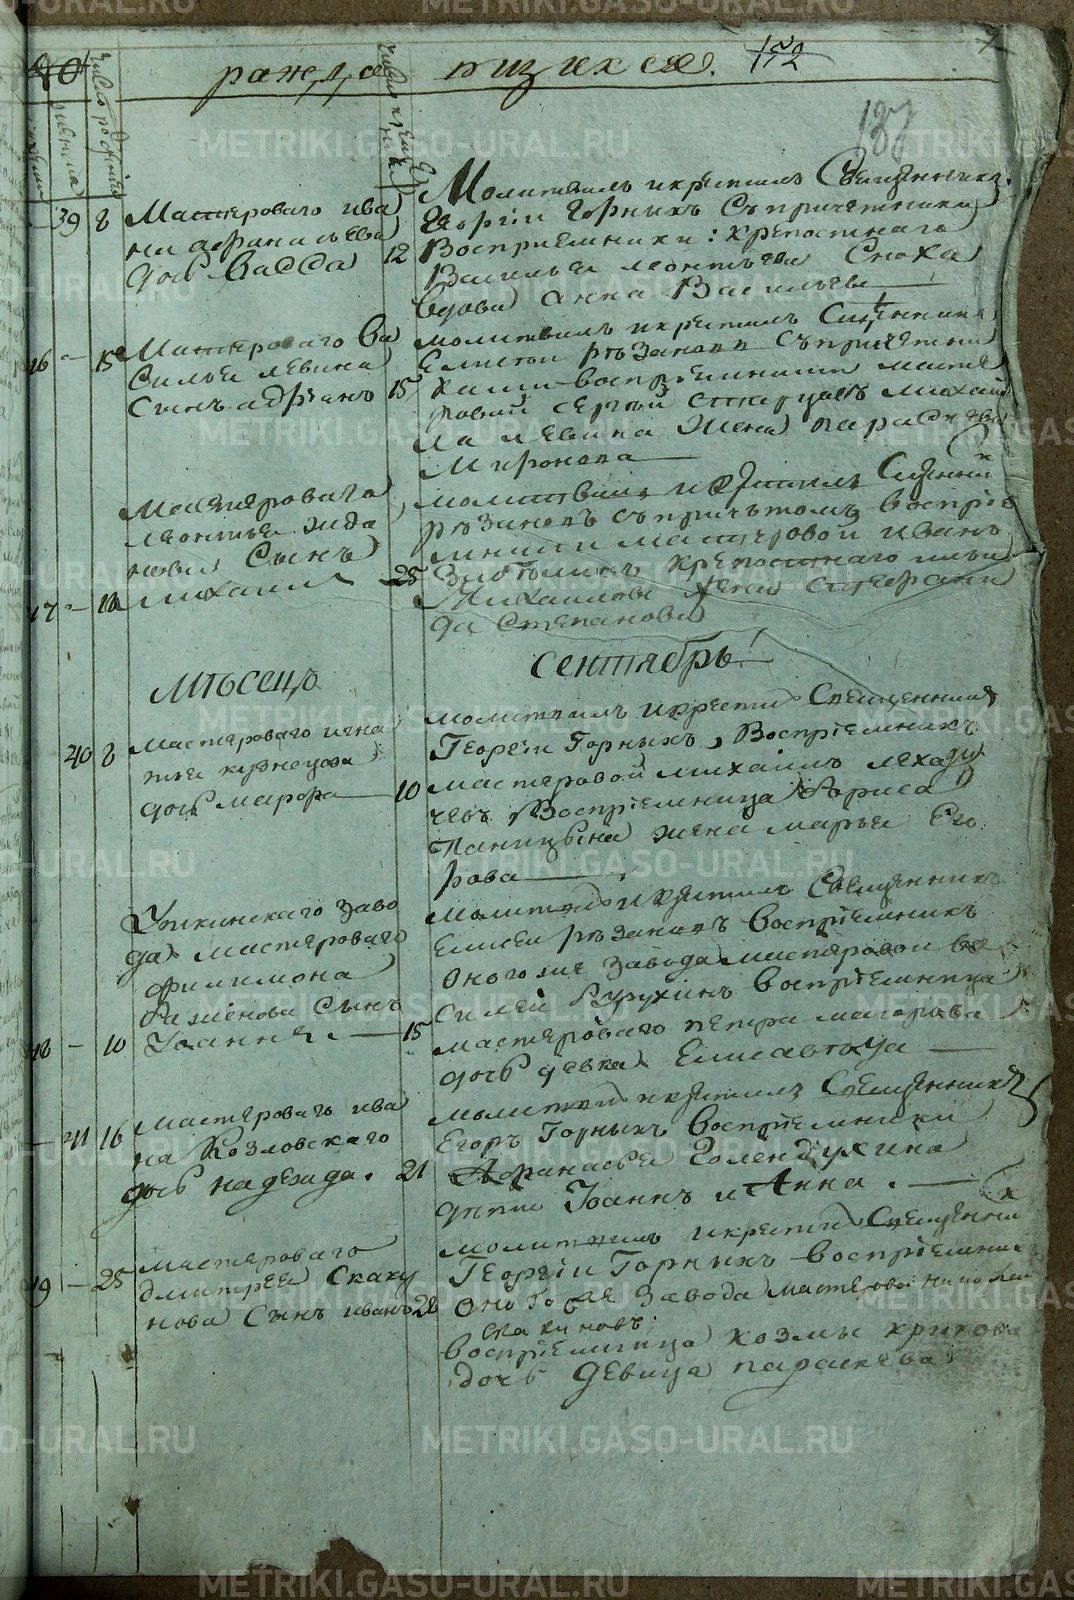 40
ражда
ющихся.
172
137
число рождения
число крещения
39
8
Мастероваго ива
на афанасьева
дочь Васса
12
Молитвилъ икрестилъ Священникъ
Георгiи Горныхъ Съпричетники
Восприемники: крепостнаго
Василья леонтьева Сноха
вдова Анна Васильева
46
15
Мастероваго Ва
Силья левина
Сынъ адрианъ
15
молитвилъ икрестилъ Священникъ
Елисеи рѣзановъ Съпричетни
ками восприемники масте
ровой сергѣй старцовъ михай
ла левина жена параскева
Миронова
47
18
Мастероваго
леонтья жда
нова Сынъ
михаилъ
25
молитвилъ икрестилъ Сщенникъ
рѣзановъ съпричтомъ восприе
мники мастеровой иванъ
крепостнаго ильи
михаилова жена степани
да Степанова
Мѣсецъ
сентябрь
40
8
мастероваго игна
тьи кузнецова
дочь марфа
10
молитвилъ икрестилъ Священникъ
Георгiи Горныхъ, Восприемникъ
мастеровой михаилъ леходу
чевъ, Восприемница бориса
Паницына жена марья Его
рова
Уткинскаго Заво
да мастероваго
филимона
баженова Сынъ
Iоаннъ
48
10
15
молитвилъ икрестилъ Священникъ
Елисеи рѣзановъ восприемникъ
оногоже завода мастеровой ва
силей восприемница
мастероваго петра магорова
дочь девка Елисавѣта
41
16
мастероваго ива
на Козловскаго
дочь надежда.
21
молитвилъ икрестилъ Священникъ
Егоръ Горныхъ восприемники
Афанасья Голендухина
дѣти Iоаннъ и Анна.
49
25
мастероваго
дмитрея Скаку
нова Сынъ иванъ
28
молитвилъ икрестилъ Священникъ
Георгiи Горныхъ восприемникъ
оногоже завода мастеровой николай
скакуновъ
восприемница козмы крюкова
дочь девица параскева
METRIKI.GASO-URAL.RU